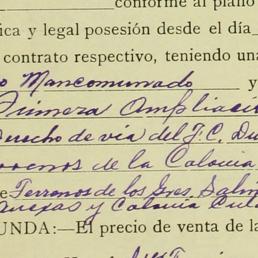 conforme al plano
ica y legal posesión desde el día
contrato respectivo, teniendo una
o Mancomunado y
Primera Ampliació
Derecho de vía del F.C. Du
errenos de la Colonia
e Terrenos de los Gres. Salin
anexas y Colonia Cul
UNDA:—El precio de venta de la